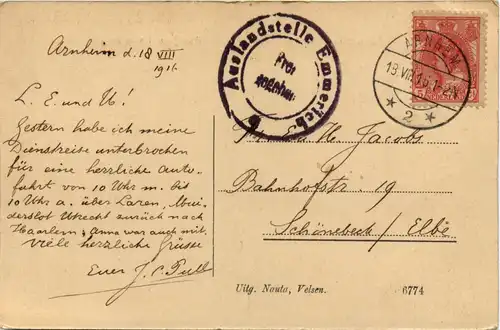 Arnheim d. 18 VIII
191
L. E. und U!
Gestern habe ich meine
Dienstreise unterbrochen
für eine herrliche Auto-
fahrt von 10 Uhr m. bis
10 Uhr a. über Laren,
derslot Utrecht zurück nach
Haarlem, Anna war auch mit,
viele herzliche Grüsse
Euer J. C.
Auslandstelle Emmerich
ARNHEM
2
Jacobs
Bahnhofstr. 19
Schönebeck / Elbe
Uitg. Nauta, Velsen.
6774